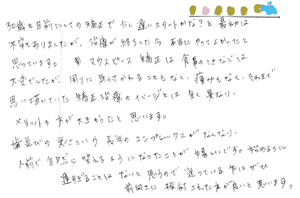 30歳を目前にしての矯正で少し遅いスタートかな？と最初は
不安もありましたが、治療が終了した今、本当にやってよかったと
思っています。マウスピース矯正は食事のときなどは
大変でしたが、周りに気づかれることもなく、痛みもなく、それまで
思い描いていた矯正治療のイメージとは全く異なり、
メリットの方が大きかったと思います。
歯並びの悪さという長年のコンプレックスがなくなり、
人前で自然に笑えるようになったことが嬉しいです。始めるのに
遅すぎることはないと思うので迷っている方はぜひ
前向きに検討された方が良いと思います。